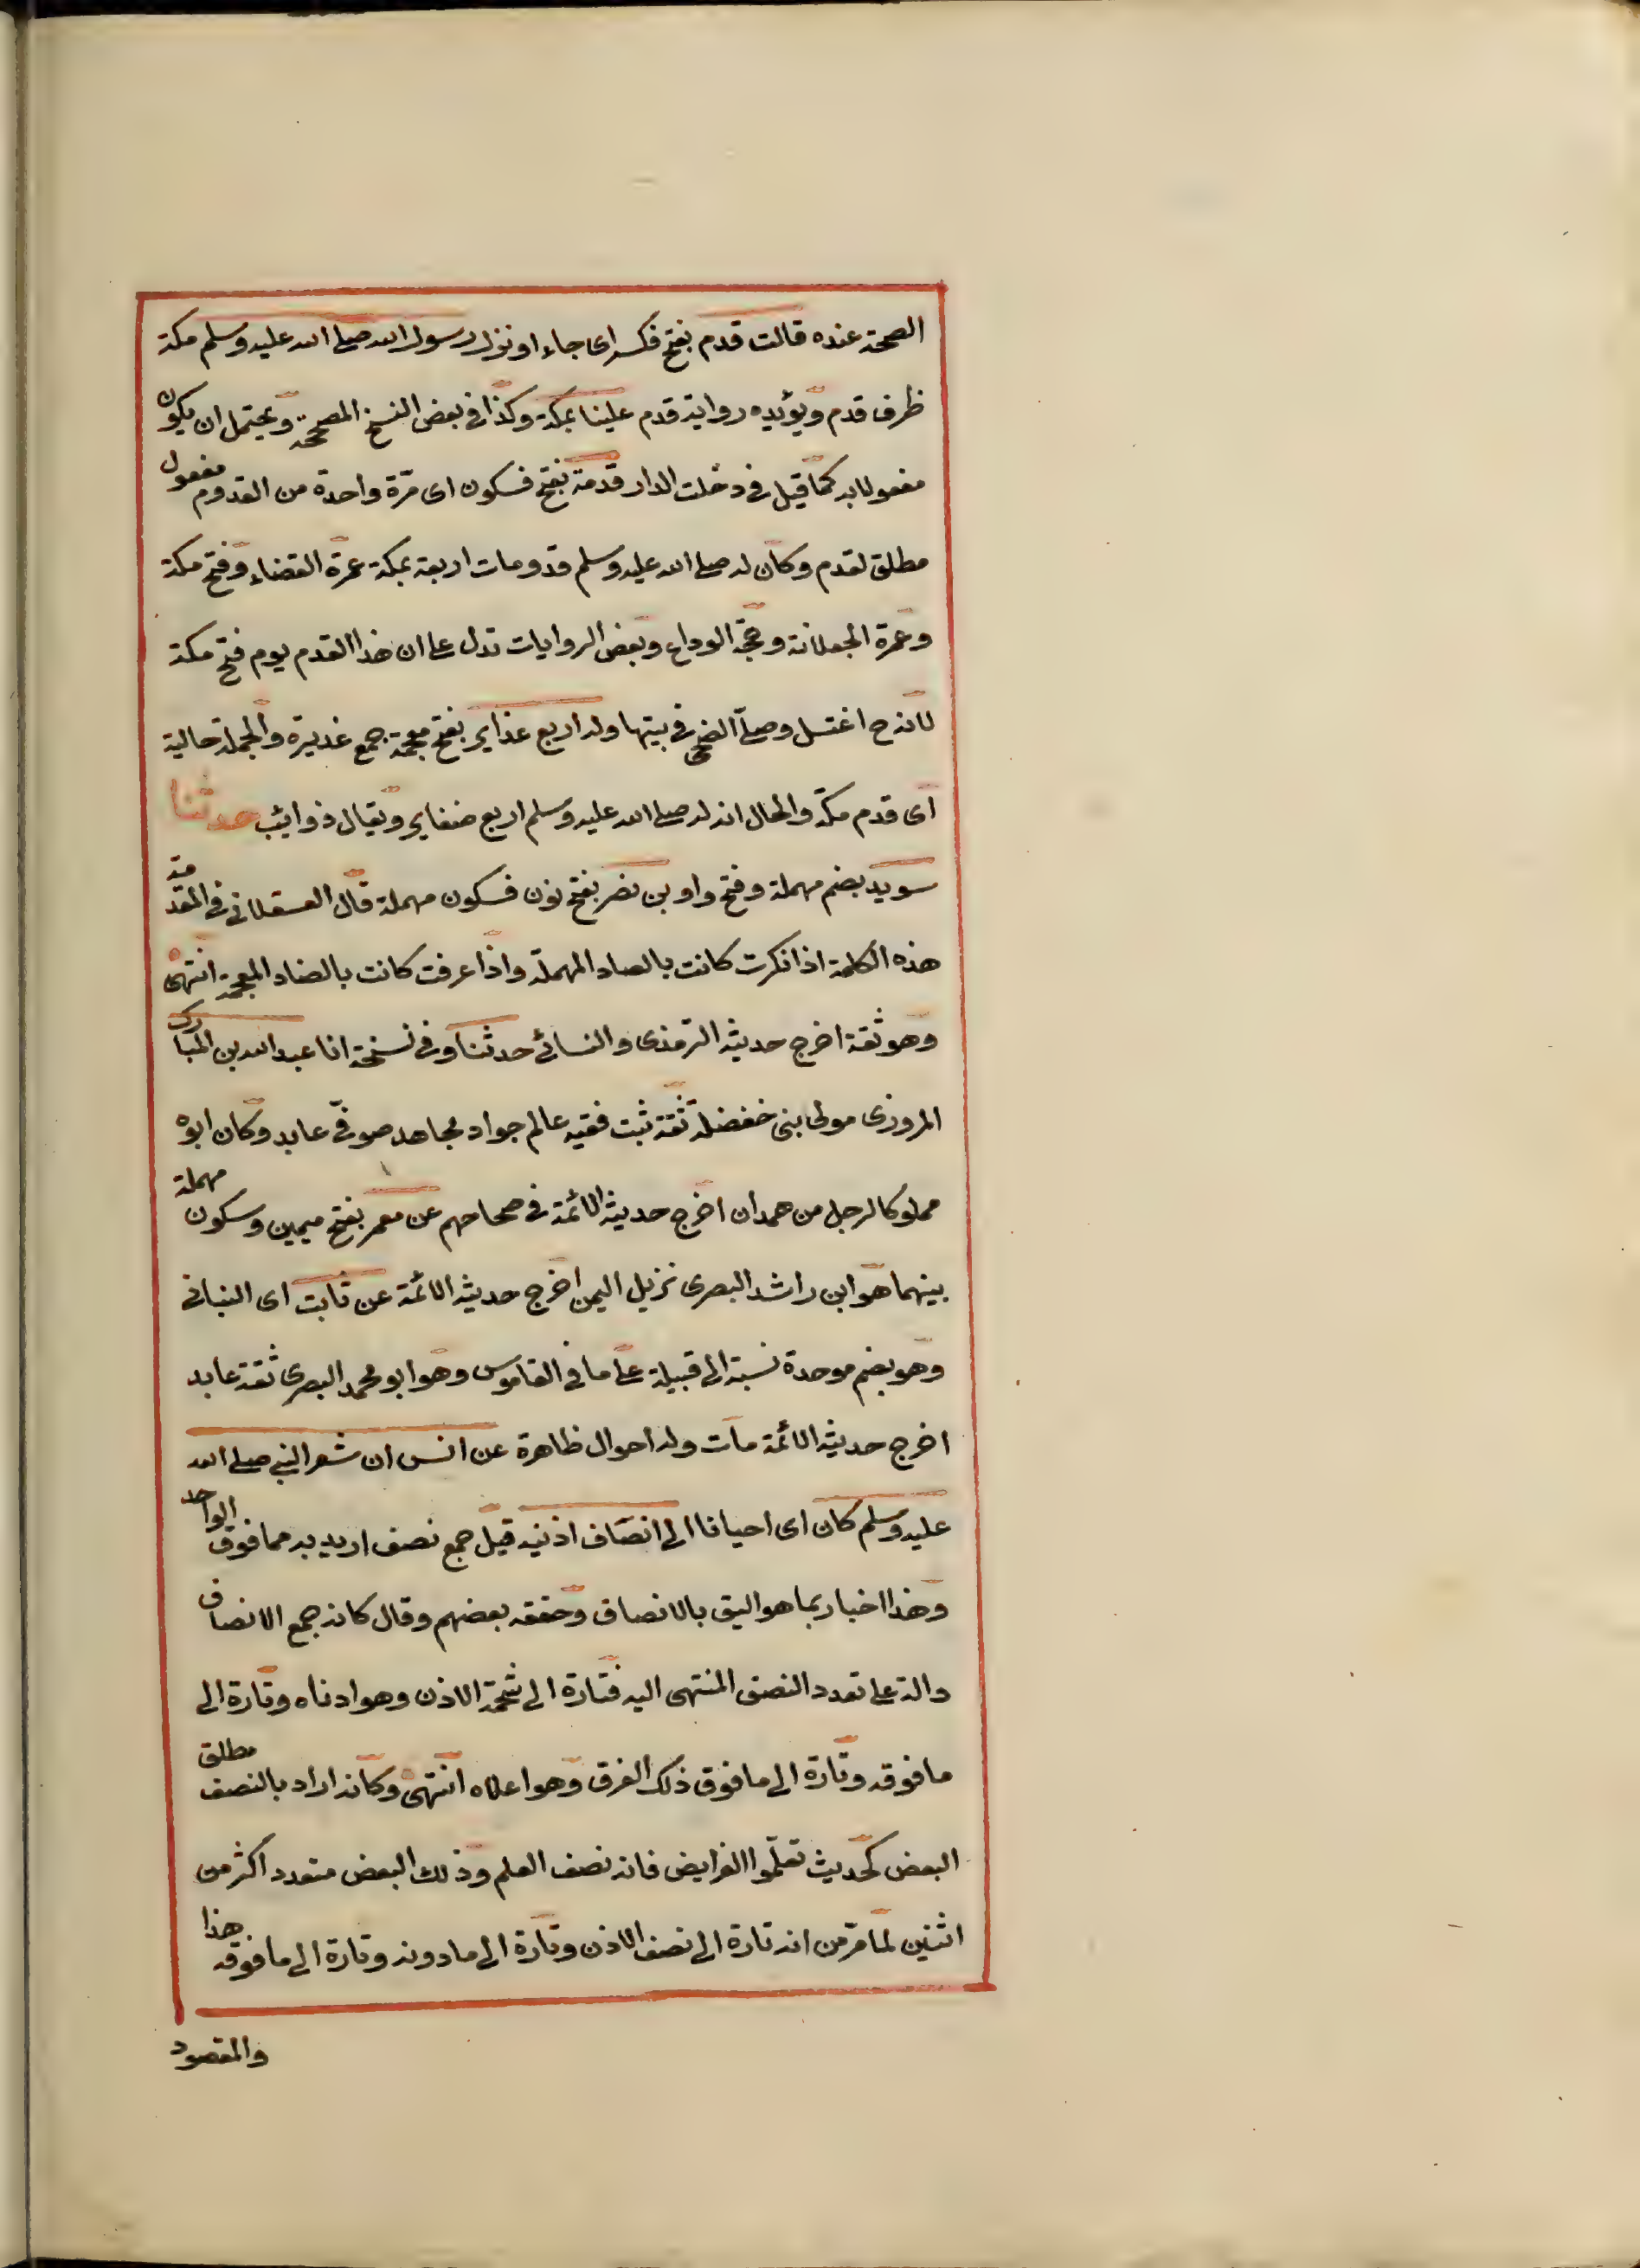 الصحة عنده قالت قدم بفتح فكسر اى جاء او نزل رسول الله صلى الله عليه وسلم مكة
ظرف قدم ويؤيده رواية قدم علينا بمكة وكذا فى بعض النسخ المصححة ويحتمل ان يكون
مفعولا به كما قيل فى دخلت الدار قدمة بفتح فسكون اى مرّة واحدة من القدوم مفعول
مطلق لقدم وكان له صلى الله عليه وسلم قدومات اربعة بمكة عمرة القضاء وفتح مكة
وعمرة الجعلانة وحجّة الوداع وبعض الروايات تدل على ان هذا القدم يوم فتح مكة
لانه ح اغتسل وصلّى الضحى فى بيتها وله اربع غداير بفتح معجمة جمع غديرة والجملة حالية
اى قدم مكّة والحال انه له صلى الله عليه وسلم اربع ضفاير ويقال ذوائب حدثنا
سويد بضم مهملة وفتح واو بن نصر بفتح نون فسكون مهملة قال العسقلانى فى المقدمة
هذه الكلمة اذا نكرت كانت بالصاد المهملة واذا عرفت كانت بالضاد المعجمة انتهى
وهو ثقة اخرج حديثه الترمذى والنسائى حدثنا وفى نسخة انا عبد الله بن المبارك
المروزى مولى بنى خغضلة ثقة ثبت فقيه عالم جواد مجاهد صوفىّ عابد وكان ابوه
مملوكا لرجل من همدان اخرج حديثه الائمة فى صحاحهم عن معمر بفتح ميمين وسكون مهملة
بينهما هو ابن راشد البصرى نزيل اليمن اخرج حديثه الائمة عن ثابت اى النبانى
وهو بضم موحدة نسبة الى قبيلة على ما فى القاموس وهو ابو محمد البصرى ثقة عابد
اخرج حديثه الائمة مات وله احوال ظاهرة عن انس ان شعر النبى صلى الله
عليه وسلم كان اى احيانا الى انصاف اذنيه قيل جمع نصف اريد به مما فوق الواحد
وهذا اخبار بما هو اليق بالانصاف وحققه بعضهم وقال كانه جمع الانصاف
دالة على تعدد النصف المنتهى اليه فتارة الى شحمة الاذن وهو ادناه وتارة الى
ما فوقه وتارة الى ما فوق ذلك الفرق وهو اعلاه انتهى وكانه اراد بالنصف مطلق
البعض كحديث تعلّموا الفرايض فانه نصف العلم وذلك البعض متعدد اكثر من
اثنين لما مرّ من انه تارة الى نصف الاذن وتارة الى ما دونه وتارة الى ما فوقه هذا
والمقصود